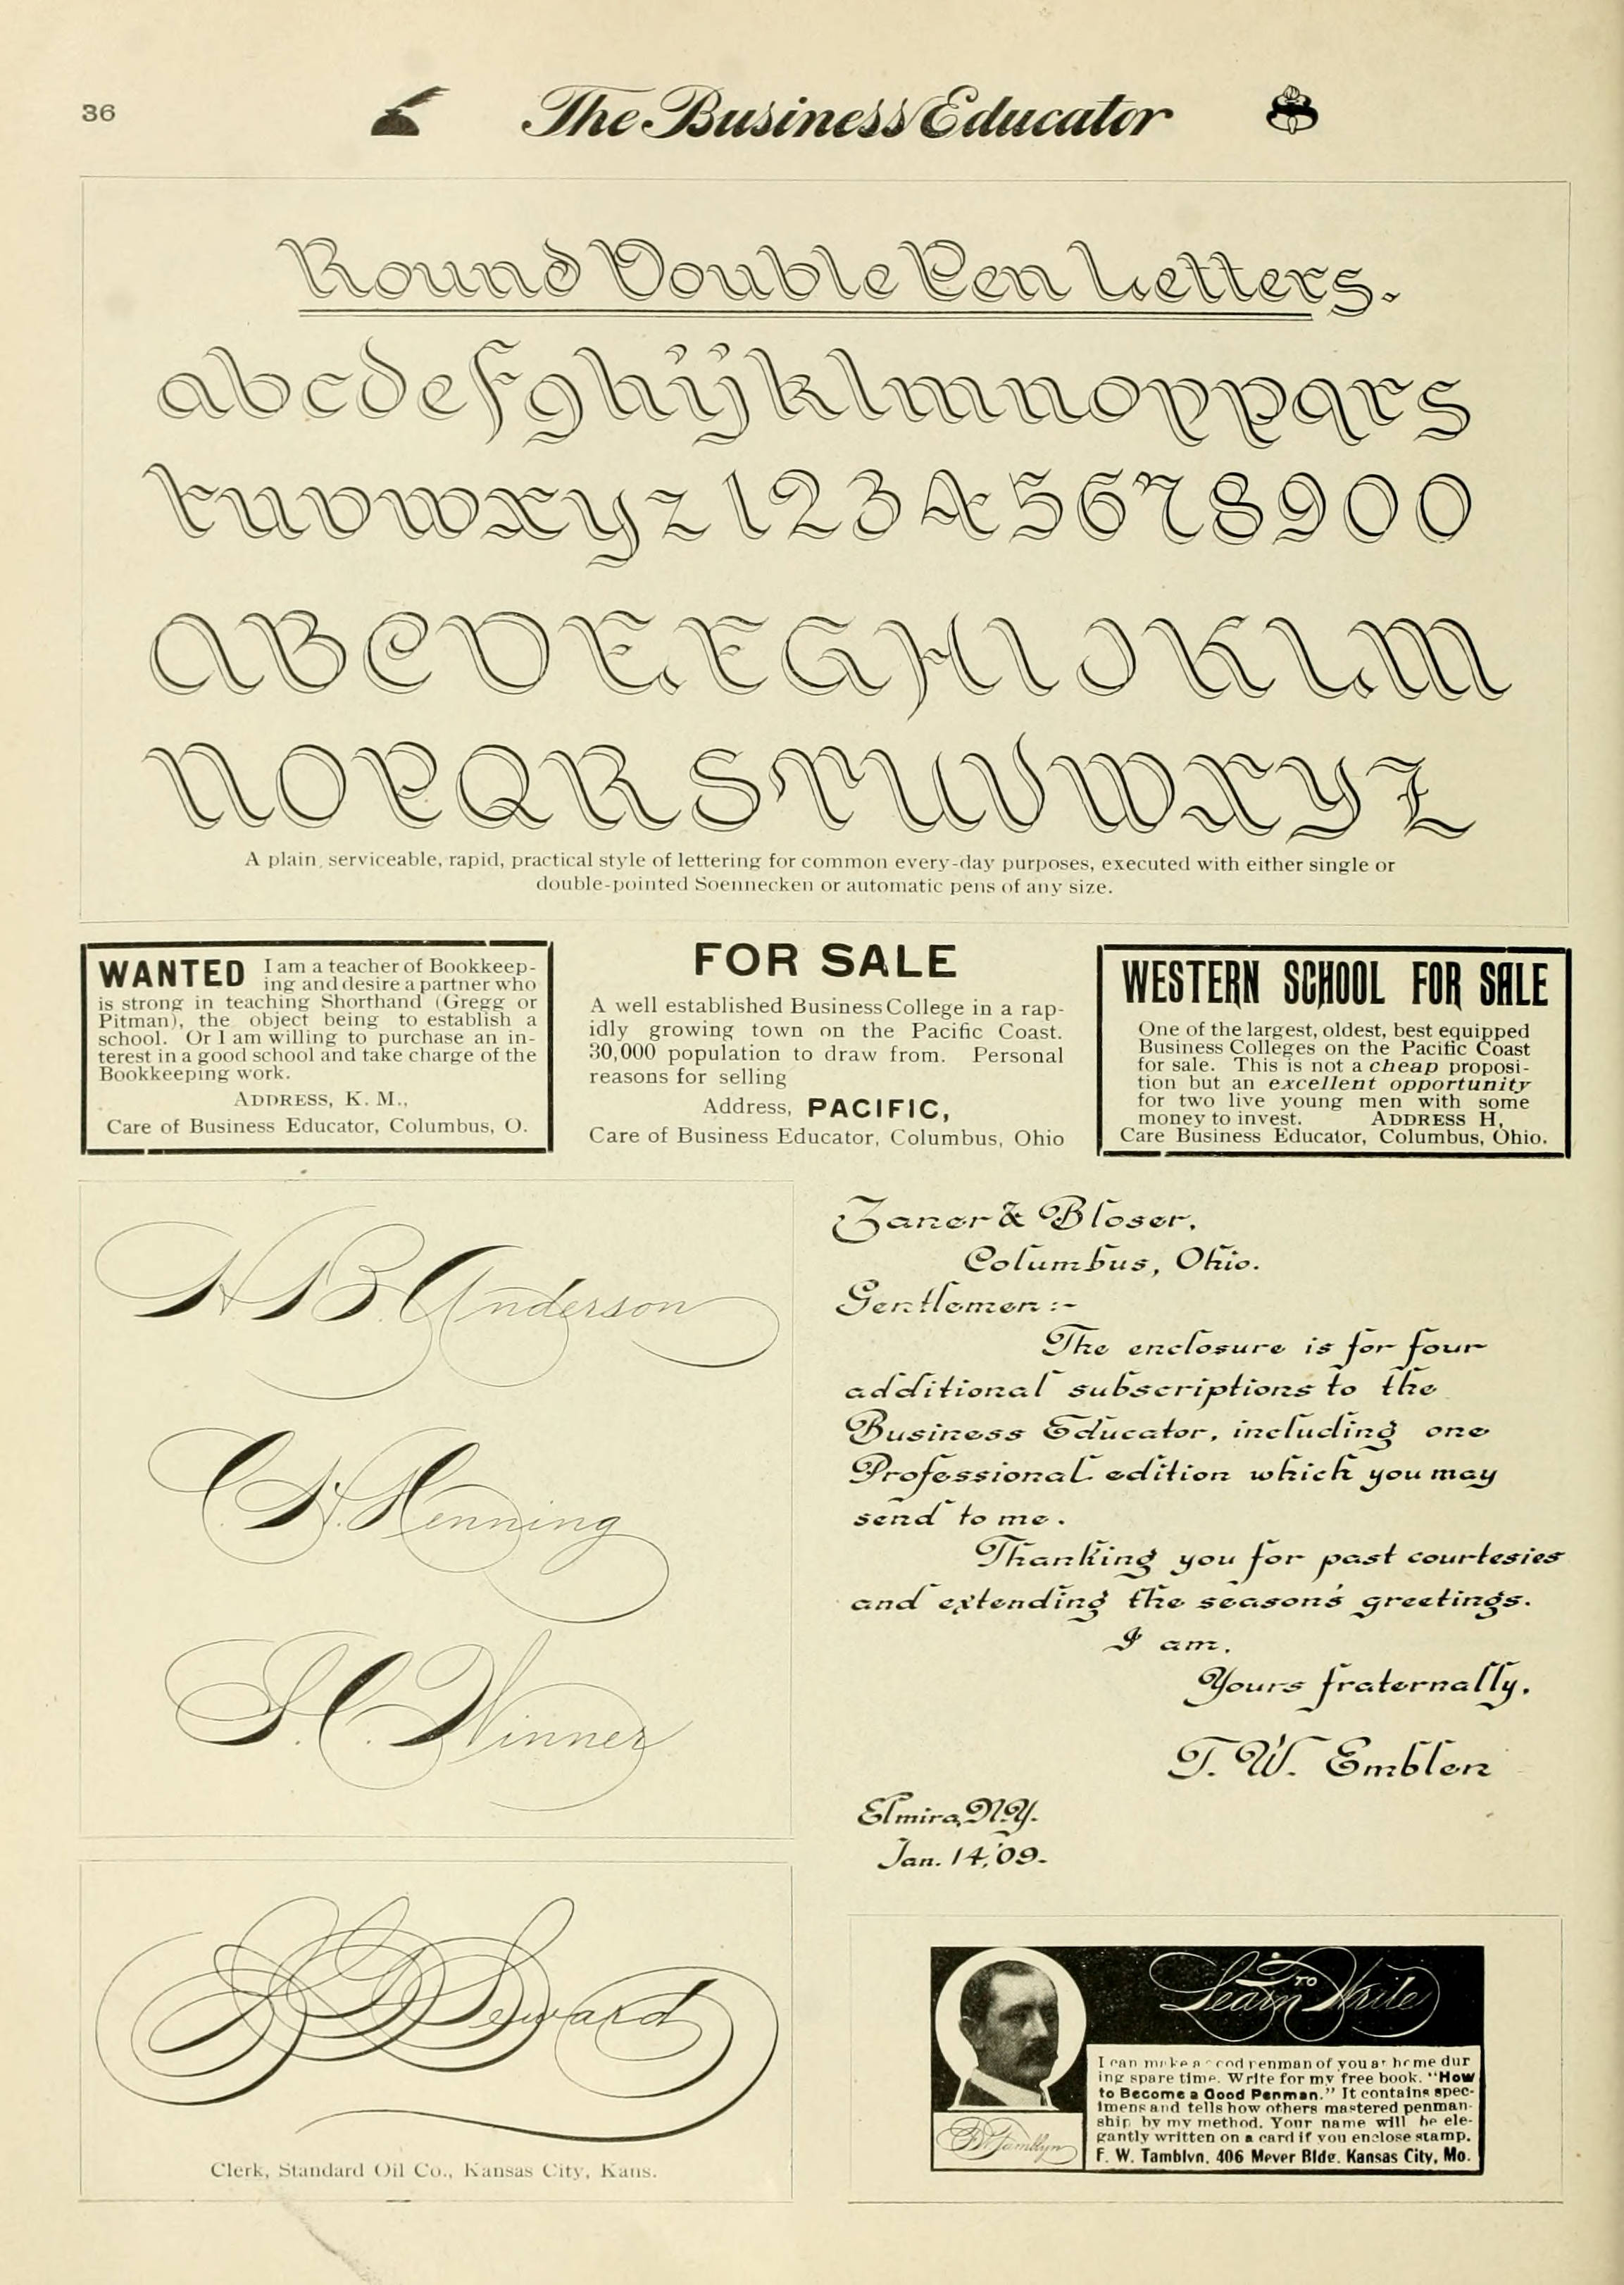 36
The Business Educator
Round Double Pen Letters.
abcdefghijklmnoppqrs
tuvwxyz 12345678900
ABCDEFGHIJKLM
NOPQRSTUVWXYZ
A plain, serviceable, rapid, practical style of lettering for common every-day purposes, executed with either single or
double-pointed Soennecken or automatic pens of any size.
WANTED I am a teacher of Bookkeep-
ing and desire a partner who
is strong in teaching Shorthand (Gregg or
Pitman), the object being to establish a
school. Or I am willing to purchase an in-
terest in a good school and take charge of the
Bookkeeping work.
ADDRESS, K. M.,
Care of Business Educator, Columbus, O.
FOR SALE
A well established Business College in a rap-
idly growing town on the Pacific Coast.
30,000 population to draw from. Personal
reasons for selling
Address, PACIFIC,
Care of Business Educator, Columbus, Ohio
WESTERN SCHOOL FOR SALE
One of the largest, oldest, best equipped
Business Colleges on the Pacific Coast
for sale. This is not a cheap proposi-
tion but an excellent opportunity
for two live young men with some
money to invest. ADDRESS H,
Care Business Educator, Columbus, Ohio.
H B. Anderson
C. H. Henning
S. C. Winner
Seward
Clerk, Standard Oil Co., Kansas City, Kans.
Zaner & Bloser,
Columbus, Ohio.
Gentlemen :-
The enclosure is for four
additional subscriptions to the
Business Educator, including one
Professional edition which you may
send to me.
Thanking you for past courtesies
and extending the season's greetings.
I am,
Yours fraternally,
T. W. Emblen
Elmira, N.Y.
Jan. 14,'09-
Learn TO Write
I can make a good penman of you at home dur
ing spare time. Write for my free book. "How
to Become a Good Penman." It contains spec-
imens and tells how others mastered penman-
ship by my method. Your name will be ele-
gantly written on a card if you enclose stamp.
F. W. Tamblyn, 406 Meyer Bldg. Kansas City, Mo.
F W Tamblyn